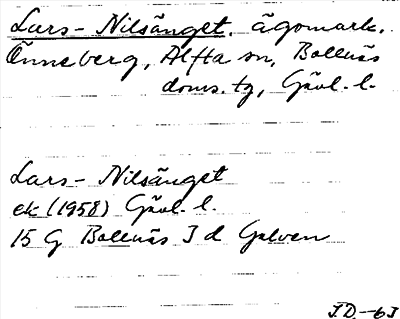 Lars-Nilsänget, ägomark,
Önneberg, Alfta sn, Bollnäs
doms. tg, Gävl. l.
Lars-Nilsänget
ek (1958) Gävl. l.
15 G Bollnäs 3 d Galven
J.D.-63